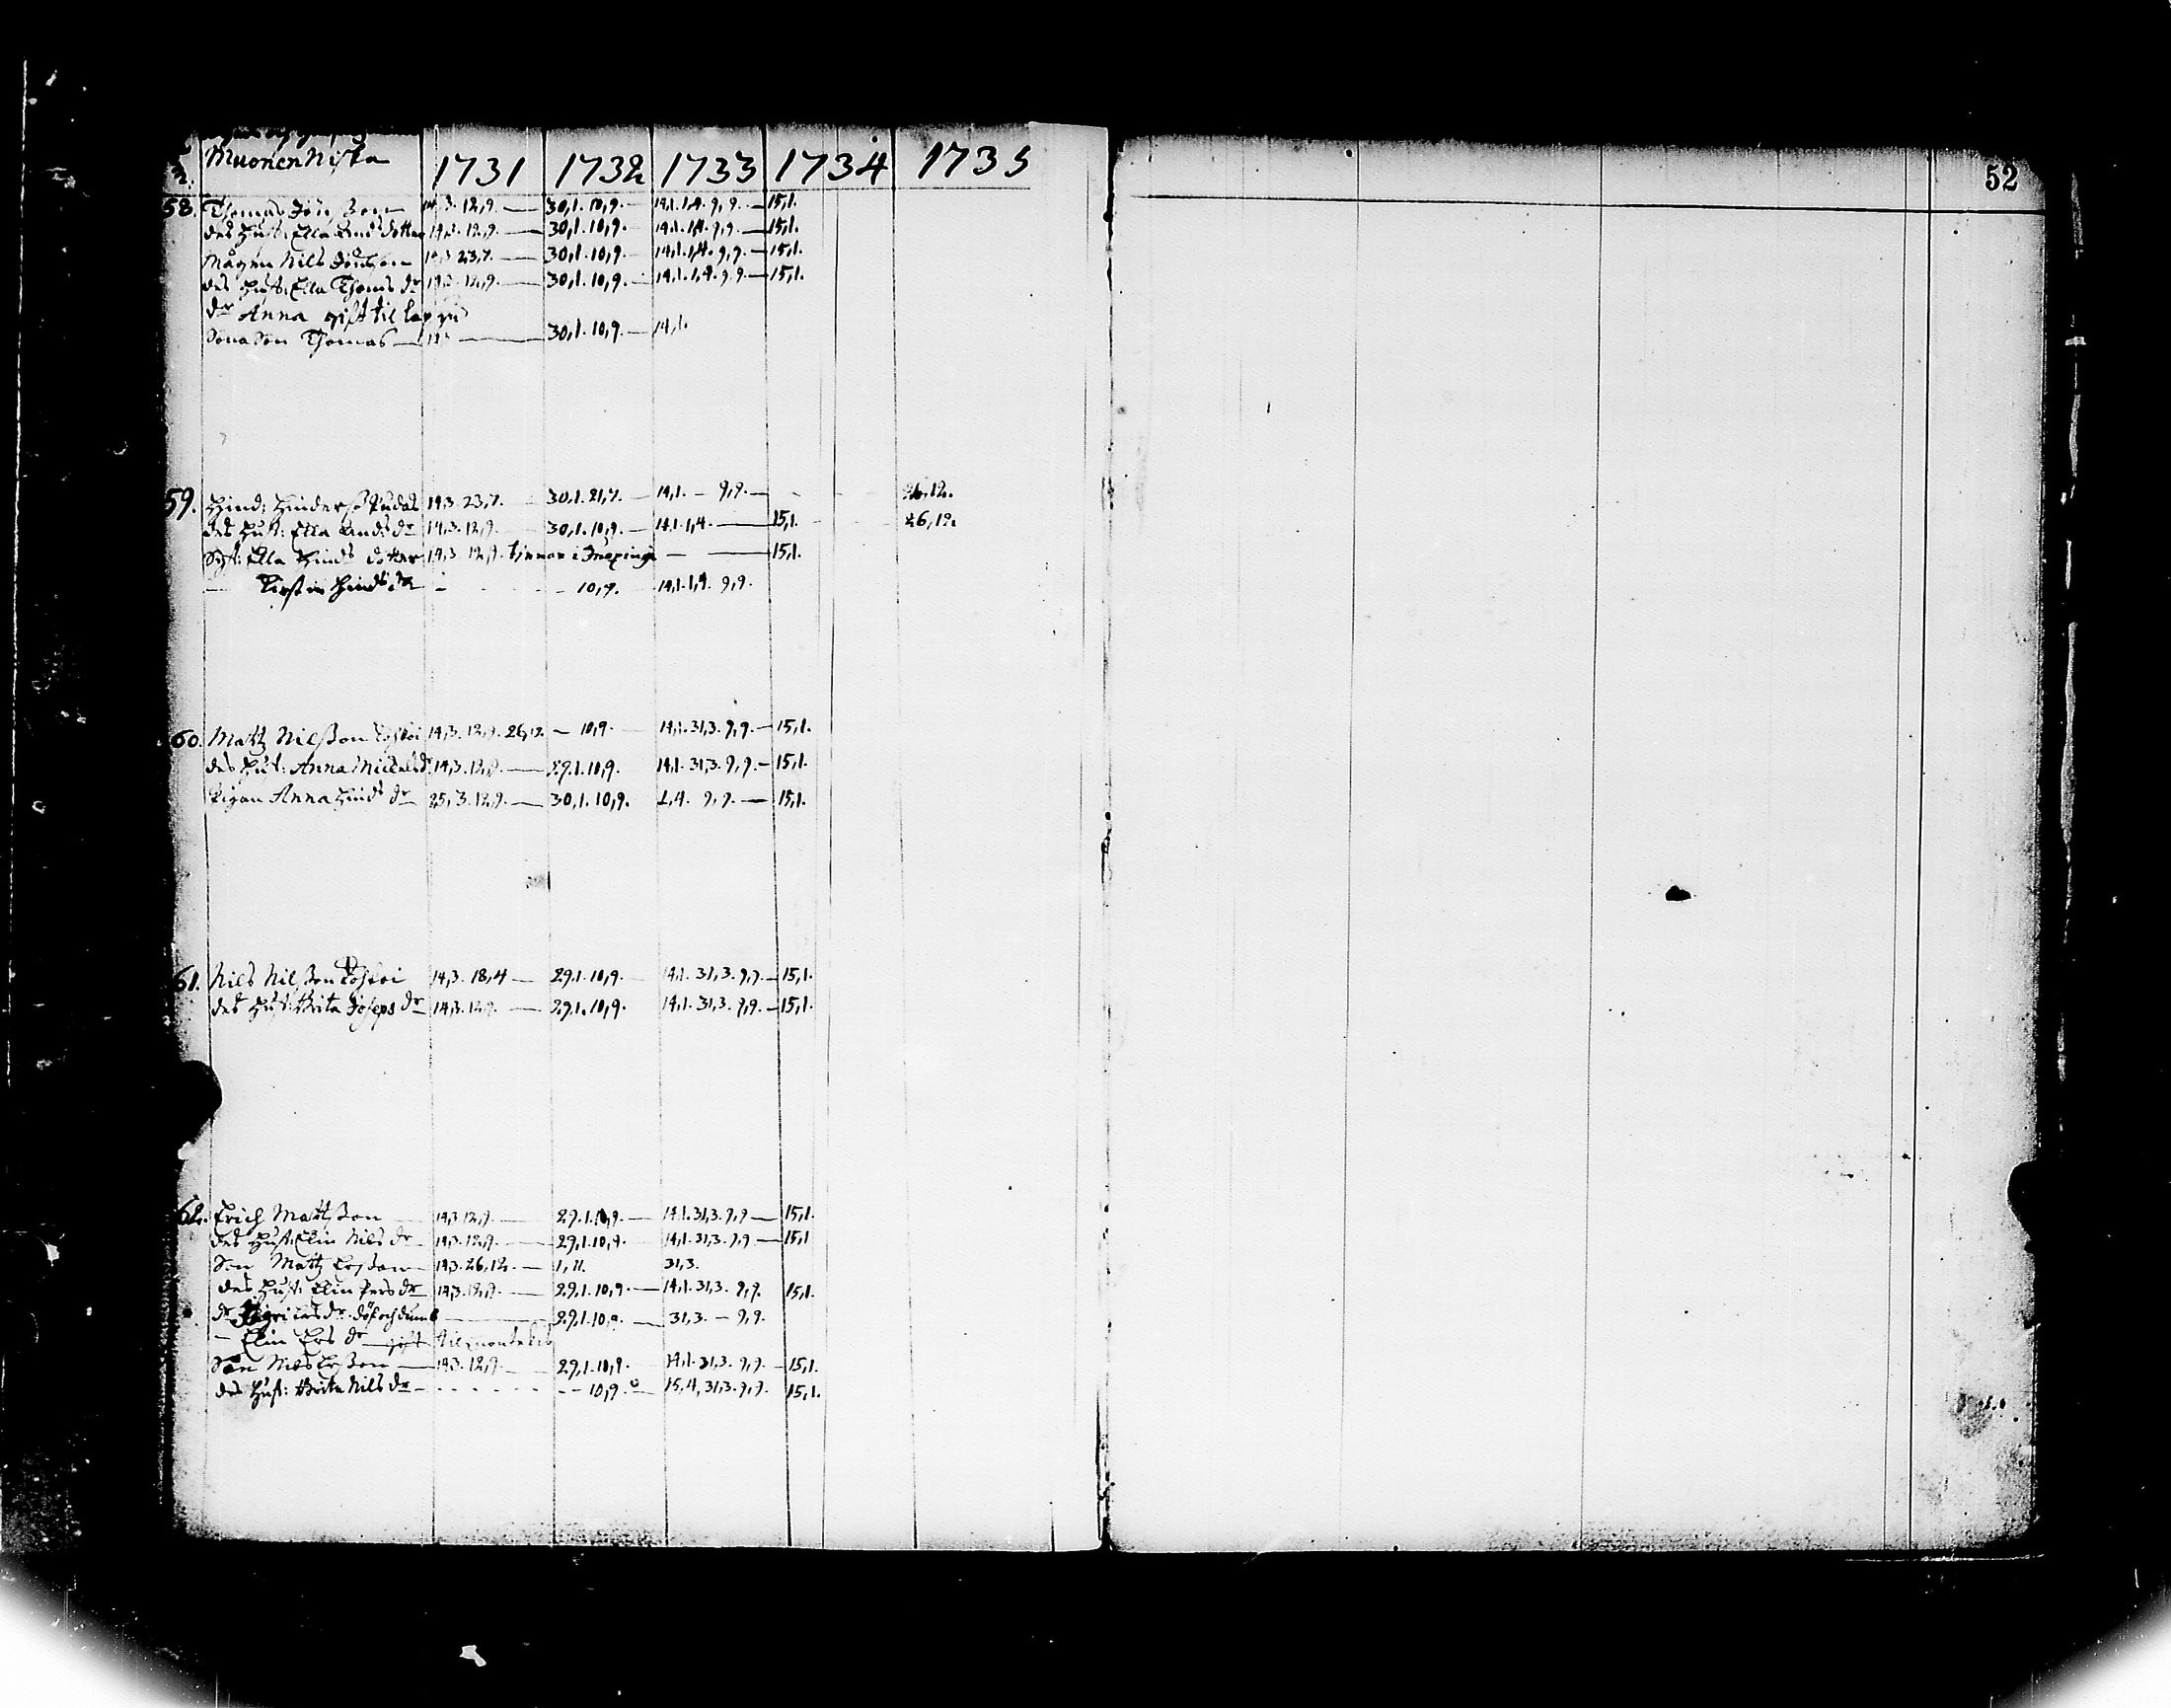 Muonen Niska 1731 1732 1733 1734 1735
52
58. Thomas Jönsson 14,3. 12,9. — 30,1. 10,9. — 14,1. 1,4. 9,9. — 15,1.
des Hust: Ella dotter 14,3. 12,9. — 30,1. 10,9. 14,1. 1,4. 9,9. — 15,1.
Mågen Nils 14,3 23,7. — 30,1. 10,9. 14,1. 1,4. 9,9. — 15,1.
des Hust: Ella Thoms dr 14,3. 12,9. — 30,1. 10,9. — 14,1. 1,4. 9,9. — 15,1.
dr Anna gift til
Sona Son Thomas — 30,1. 10,9. — 14,1.
59. Hind: Hinderss 14,3. 23,7. 30,1. 21,7. — 14,1. – 9,9. — 26,12.
des Hust: Ella dr 14,3. 12,9. — 30,1. 10,9. — 14,1. 1,4. — 15,1. 26,12.
Ella Hinds dotter 14,3. 12,9. tjenar i — 15,1.
— Kirstin Hinds dr - 10,9. 14,1. 1,4. 9,9.
60. Matts Nilsson 14,3. 12,9. 26,12. — 10,9. 14,1. 31,3. 9,9. — 15,1.
des Hust: Anna Michels dr 14,3. 12,9. — 29,1. 10,9. 14,1. 31,3. 9,9. — 15,1.
Pigan Anna Hinds dr 25,3. 12,9. — 30,1. 10,9. 1,4. 9,9. — 15,1.
61. Nils Nilsson 14,3. 18,4 — 29,1. 10,9. 14,1. 31,3. 9,9. — 15,1.
des Hust: Brita Joseps dr 14,3. 12,9. — 29,1. 10,9. 14,1. 31,3. 9,9. — 15,1.
62. Erich Mattsson 14,3. 12,9. — 29,1. 10,9. — 14,1. 31,3. 9,9 — 15,1.
des Hust: Elin Nils dr 14,3. 12,9. — 29,1. 10,9. 14,1. 31,3. 9,9 — 15,1
Son Matts Ersson 14,3. 26,12. — 1,11. 31,3.
des Hust: Elin Pers dr 14,3. 12,9. — 29,1. 10,9. — 14,1. 31,3. 9,9. 15,1.
dr Ers dr döf och dumb — 29,1. 10,9. — 31,3. — 9,9.
— Elin Ers dr gift til
Son Nils Ersson — 14,3. 12,9. — 29,1. 10,9. 14,1. 31,3. 9,9. — 15,1.
des Hust: Brita Nils dr - - - - - - 10,9. — 15,4, 31,3. 9,9. 15,1.